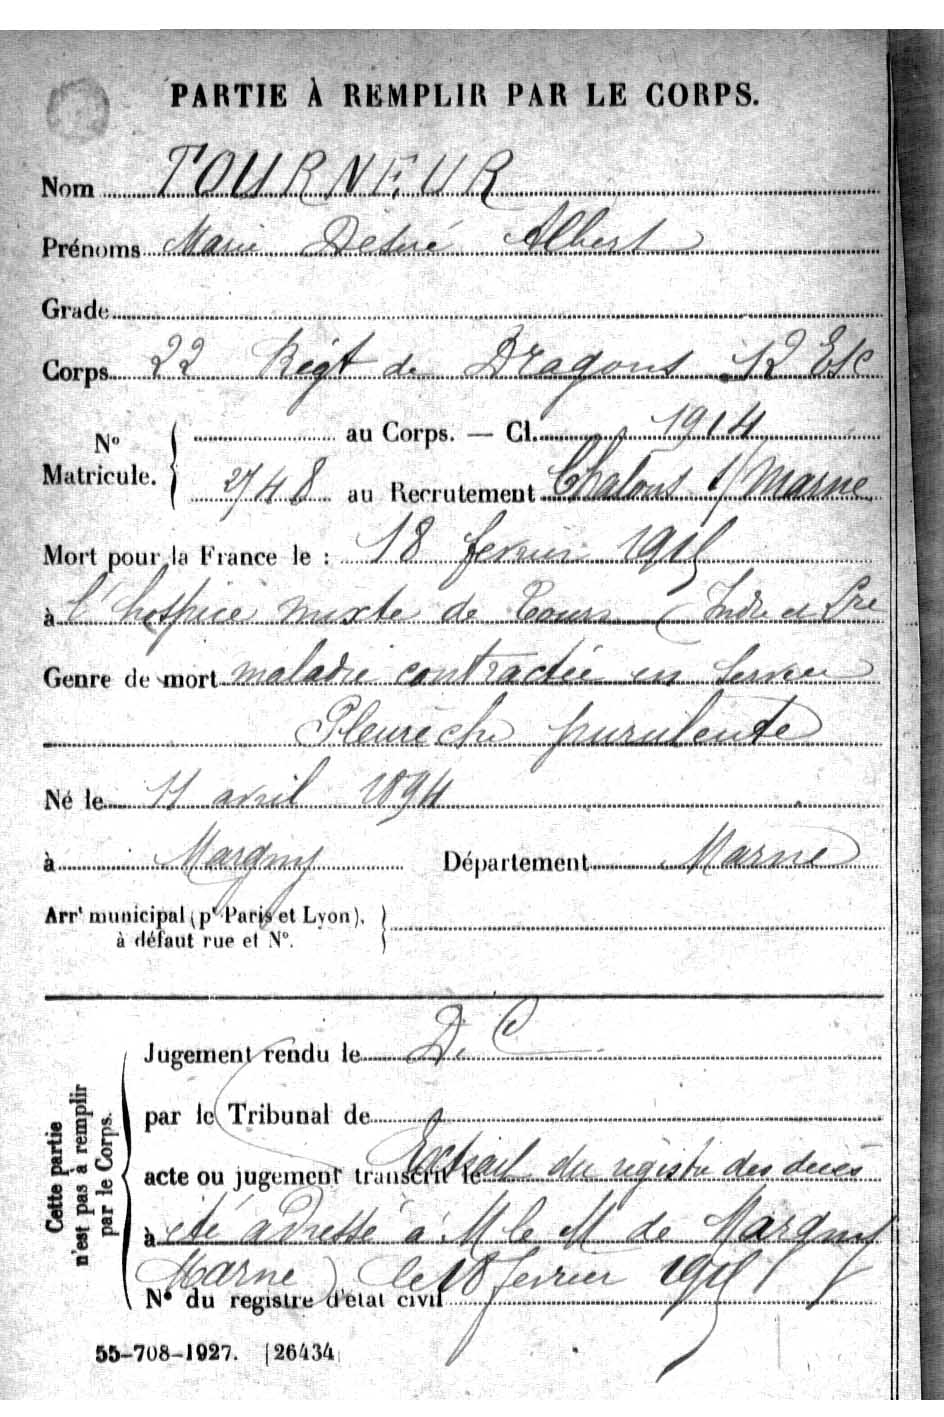 PARTIE À REMPLIR PAR LE CORPS.
Nom TOURNEUR
Prénoms Marie Désiré Albert
Grade
Corps 22 Régt de Dragons 12 Esc
N° Matricule. { au Corps. — Cl. 1914
2748 au Recrutement Chalons s/ Marne
Mort pour la France le : 18 fevrier 1915
à l'hospice mixte de Tours (Indre et Lre
Genre de mort maladie contractée en service
Pleurèsie purulente
Né le 11 avril 1894
à Margny Département Marne
Arrt municipal (pr Paris et Lyon), à défaut rue et N°. }
Cette partie n'est pas à remplir par le Corps.
Jugement rendu le D. C
par le Tribunal de
acte ou jugement transcrit le Extrait du registre des decès
à été adressé à M le M de Margny
(Marne) le 18 fevrier 1915
N° du registre d'état civil
55-708-1927. [26434]